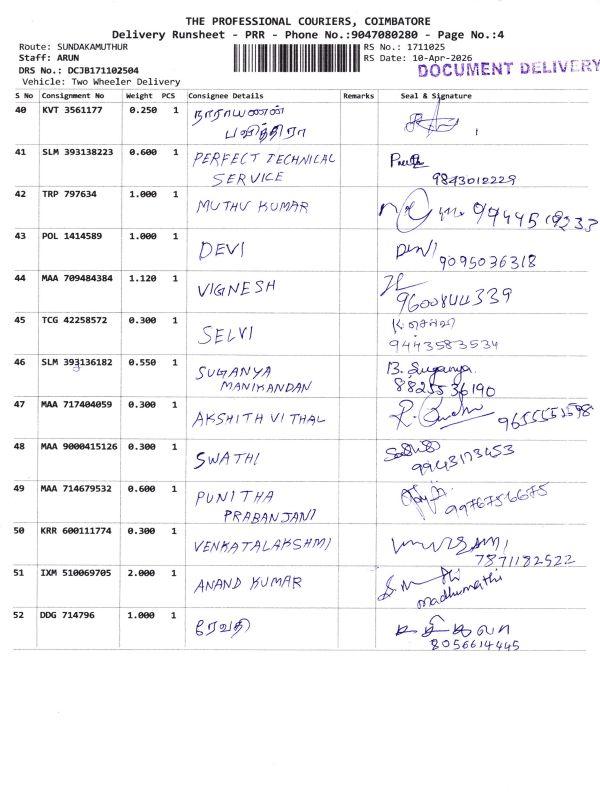 THE PROFESSIONAL COURIERS, COIMBATORE
Delivery Runsheet - PRR - Phone No.:9047080280 - Page No.:4
Route: SUNDAKAMUTHUR
RS No.: 1711025
Staff: ARUN
RS Date: 10-Apr-2026
DOCUMENT DELIVERY
DRS No.: DCJB171102504
Vehicle: Two Wheeler Delivery
S No Consignment No Weight PCS Consignee Details Remarks Seal & Signature
40 KVT 3561177 0.250 1 நாராயணன்
பவித்திரா
41 SLM 393138223 0.600 1 PERFECT TECHNICAL
SERVICE
9843012229
42 TRP 797634 1.000 1 MUTHU KUMAR 9944519233
43 POL 1414589 1.000 1 DEVI Devi
9095036318
44 MAA 709484384 1.120 1 VIGNESH
9600844339
45 TCG 42258572 0.300 1 SELVI K. செல்வி
9443583534
46 SLM 393136182 0.550 1 SUGANYA B. Suganya
MANIKANDAN 8825536190
47 MAA 717404059 0.300 1 AKSHITH VITHAL
48 MAA 9000415126 0.300 1 SWATHI
9943173453
49 MAA 714679532 0.600 1 PUNITHA
PRABANJANI 9976756675
50 KRR 600111774 0.300 1 VENKATALAKSHMI
7871182522
51 IXM 510069705 2.000 1 ANAND KUMAR
madhumathi
52 DDG 714796 1.000 1 ரேவதி
8056614445